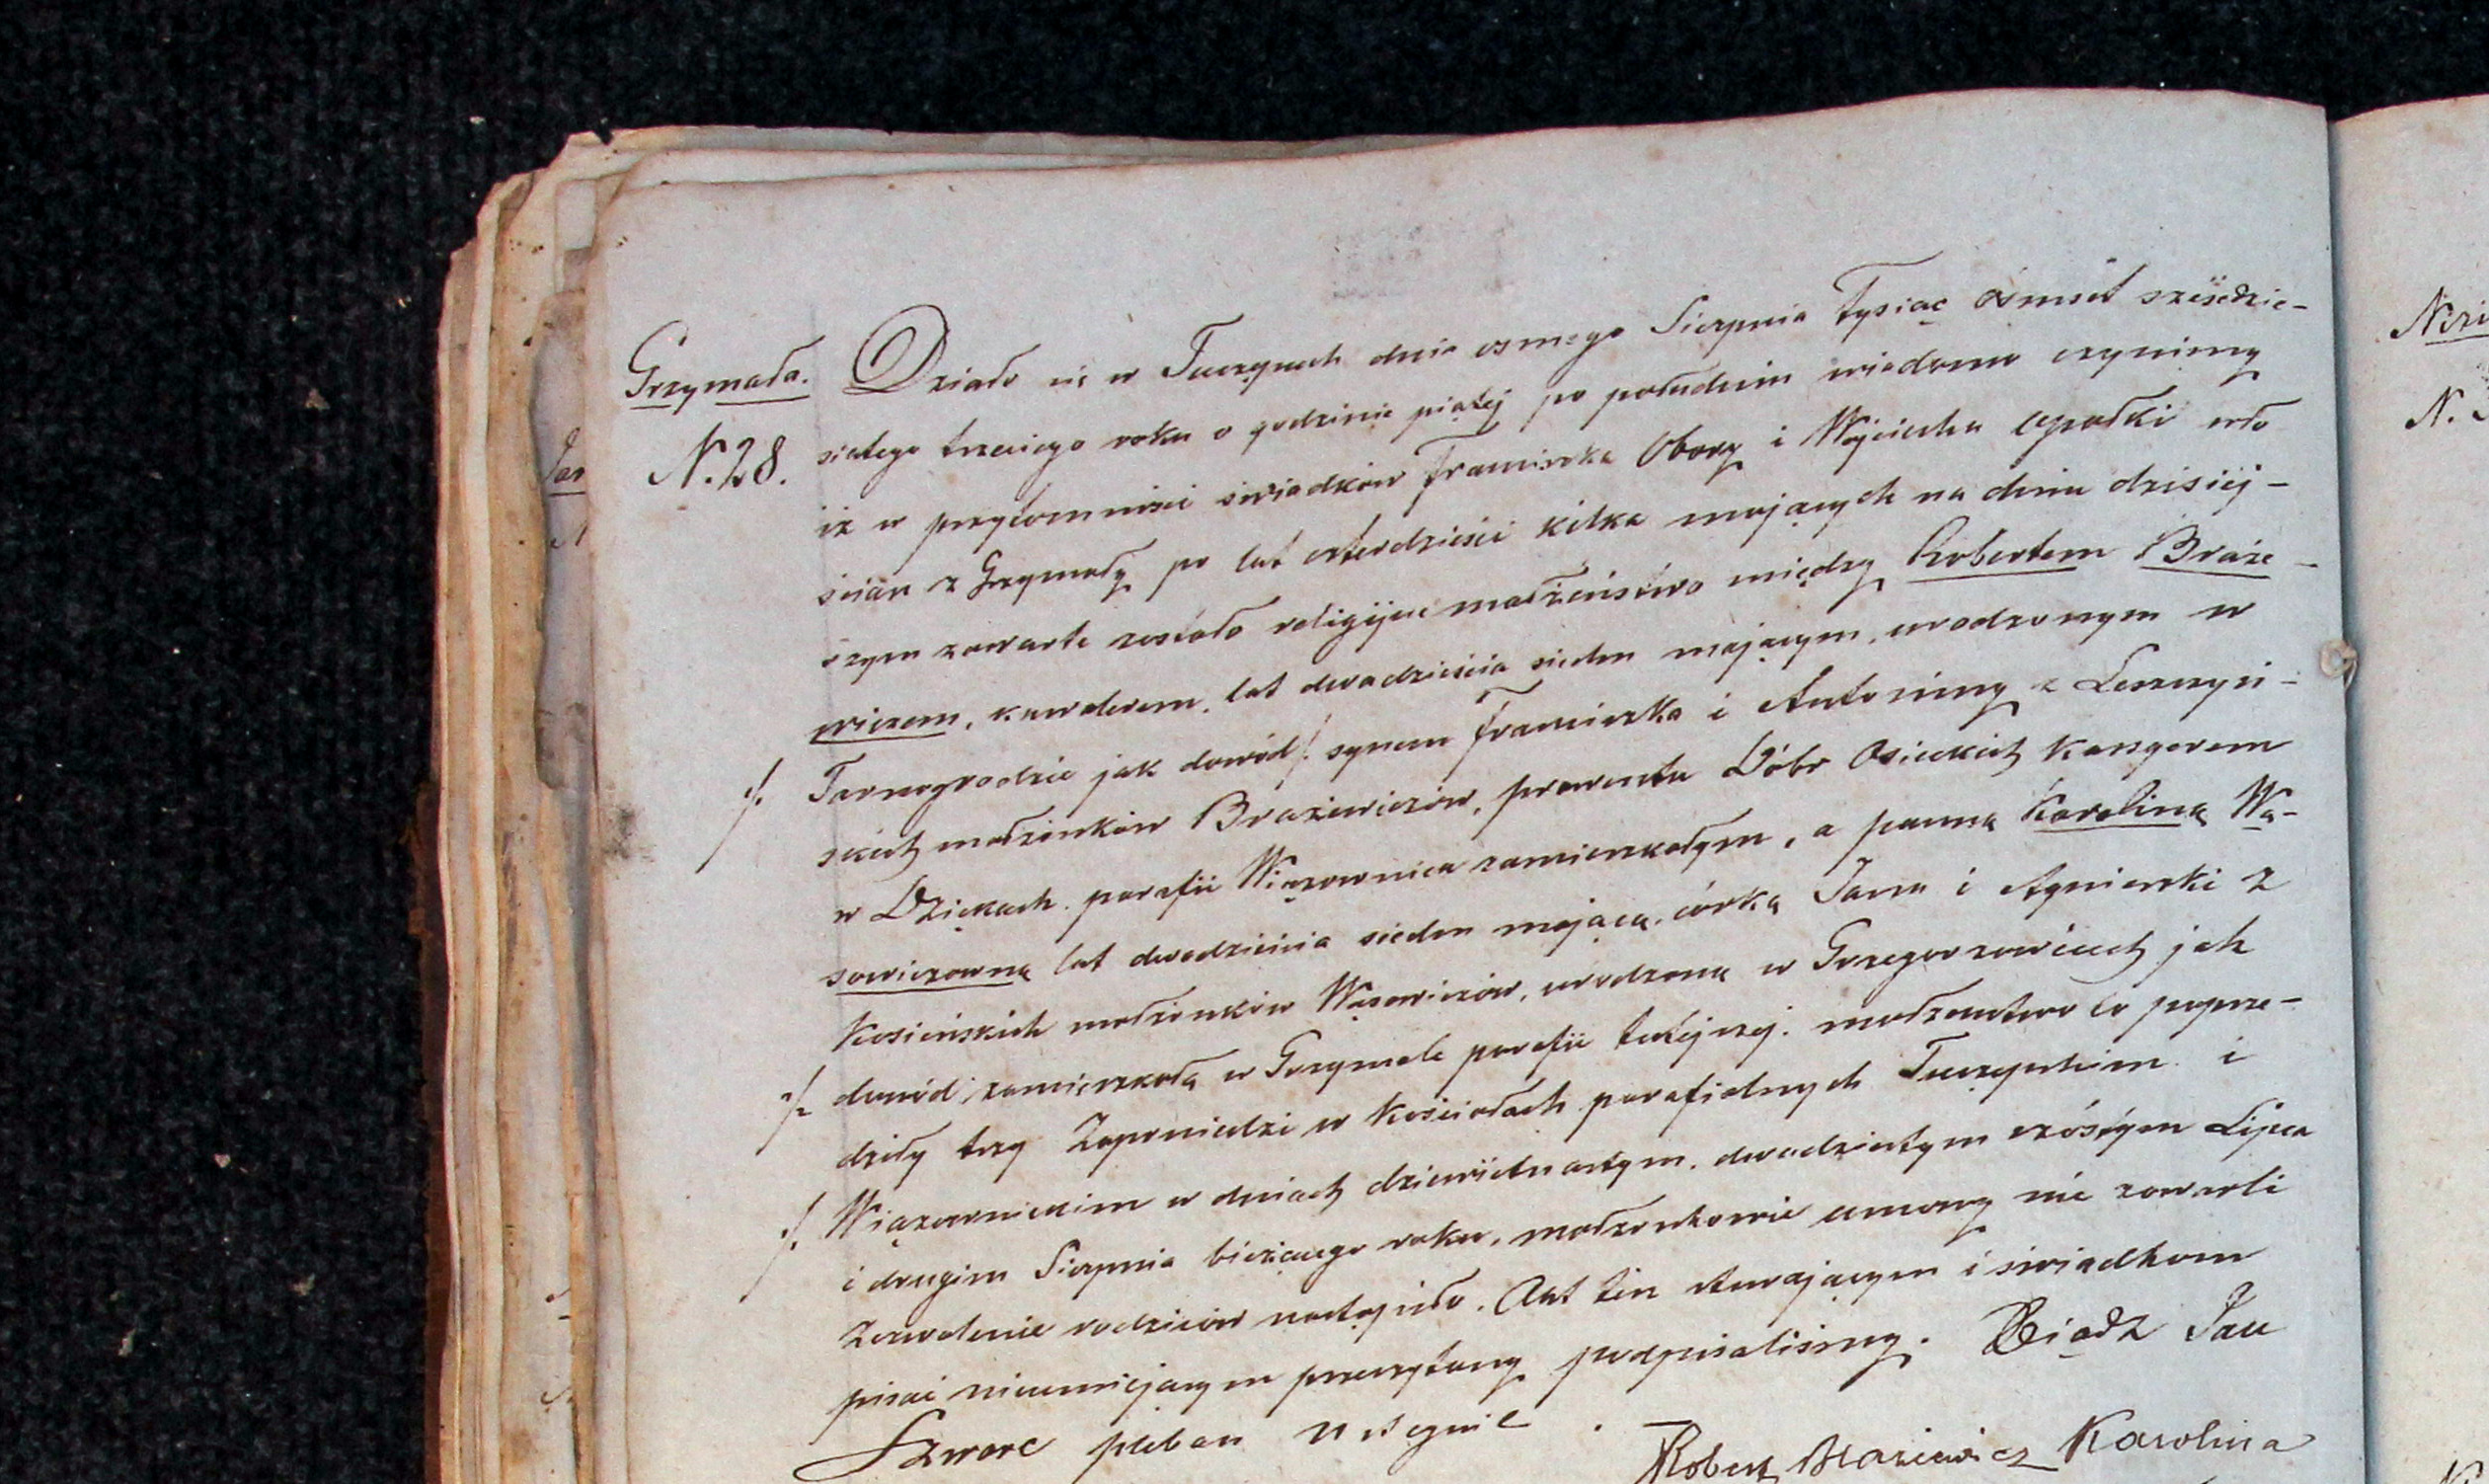 Grzymała.
N. 28.
Działo się w Tuczępach dnia osmego Sierpnia Tysiąc ósmset sześćdzie-
siątego trzeciego roku o godzinie piątej po południu wiadomo czynimy
iż w przytomności świadków Franciszka Obary i Wojciecha włо-
ścian z Grzymały po lat czterdzieści kilka mających na dniu dzisiéj-
szym zawarte zostało religijne małżeństwo między Robertem Braże-
wiczem, kawalerem, lat dwadzieścia siedm mającym, urodzonym w
Tarnogrodzie jak dowód /. synem Franciszka i Antoniny z Leszczyń-
skich małżonków Brażewiczów, prowentu Dóbr Osieckich
w Dziękach parafii Wiązownica zamieszkałym, a panną Karoliną Wą-
sowiczowną lat dwadzieścia siedm mającą, córką Jana i Agnieszki z
Kosińskich małżonków Wąsowiczów, urodzoną w Grzegorzowicach jak
dowód zamieszkałą w Grzymale parafii tutéjszej. małżeństwo to poprze-
dziły trzy Zapowiedzi w Kościołach parafialnych Tuczępskim i
Wiązownickim w dniach dziewiętnastym, dwudziestym szóstym Lipca
i drugim Sierpnia bieżącego roku, małżonkowie umowy nie zawarli
Zezwolenie rodziców nastąpiło. Akt ten stawającym i świadkom
pisać nieumiejącym przeczytany podpisaliśmy. Xiądz Jan
Szwarc pleban
Robert Brażewicz Karolina